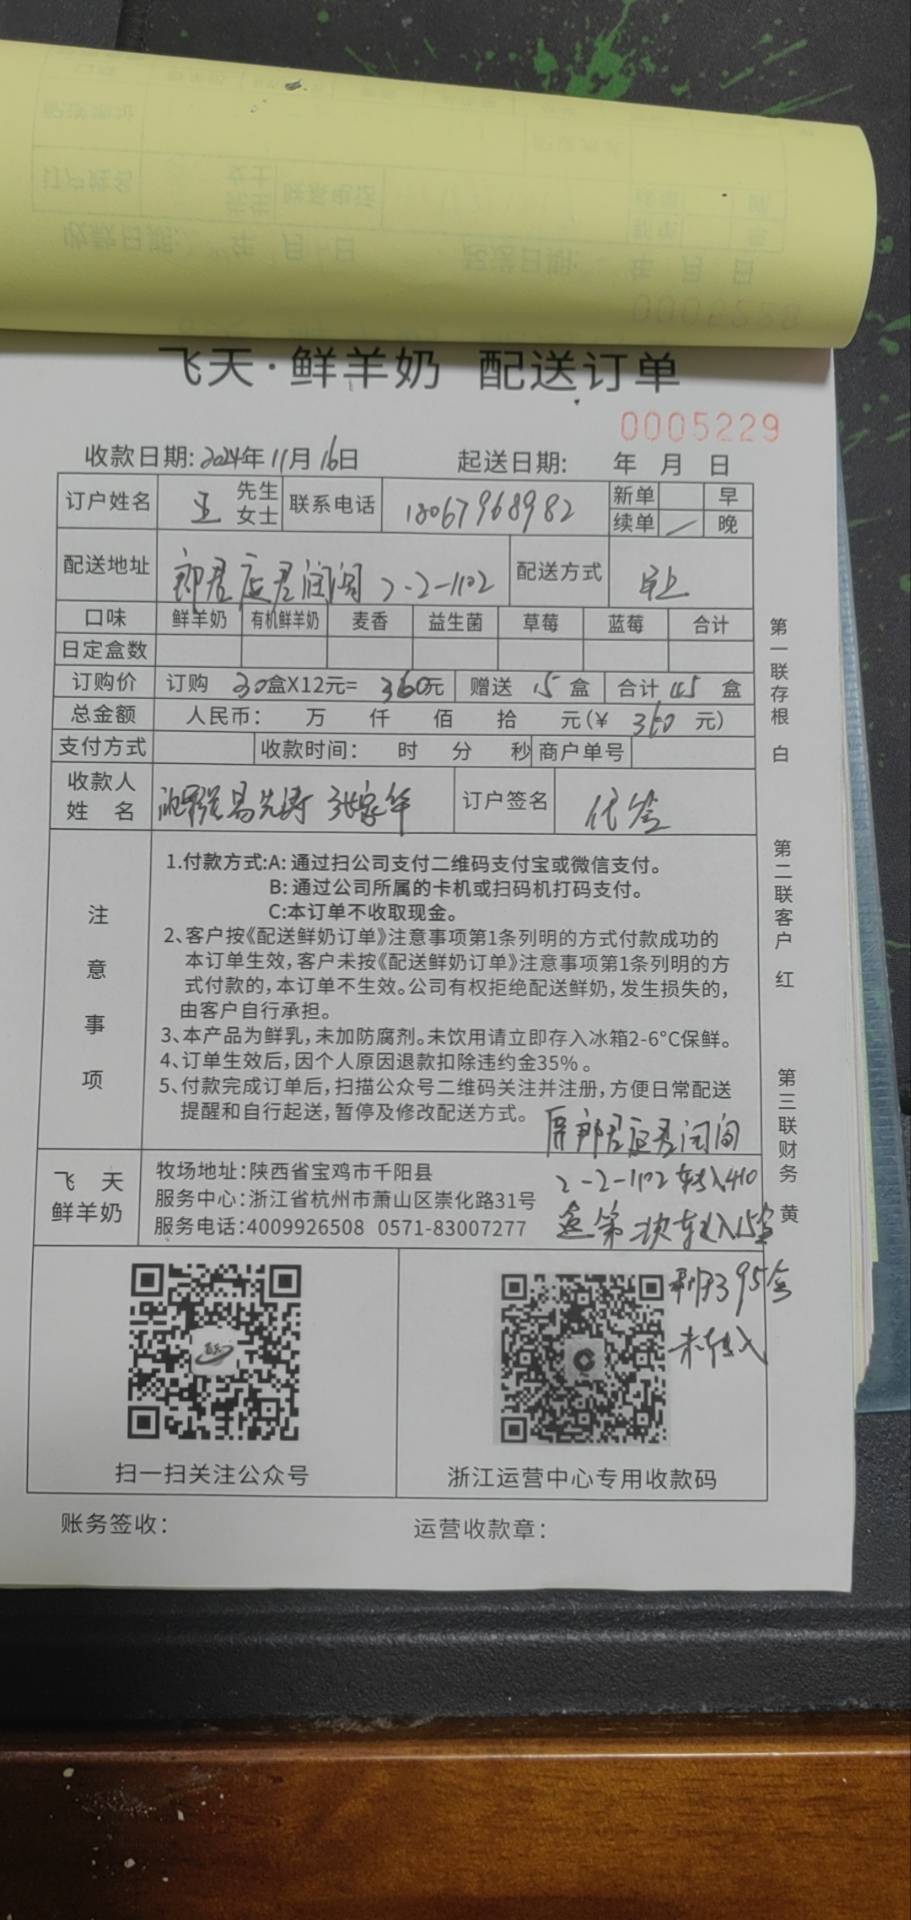 飞天·鲜羊奶 配送订单
0005229
收款日期: 2024年11月16日 起送日期: 年 月 日
订户姓名 王 先生 女士 联系电话 18067968982 新单 早
续单 / 晚
配送地址 郡君 2-2-1102 配送方式 早上
口味 鲜羊奶 有机鲜羊奶 麦香 益生菌 草莓 蓝莓 合计
日定盒数
订购价 订购 30盒X12元= 360元 赠送 15盒 合计 45盒
总金额 人民币: 万 仟 佰 拾 元(¥ 360 元)
支付方式 收款时间: 时 分 秒 商户单号
收款人 姓名 张家华 订户签名 代签
注意事项
1.付款方式:A: 通过扫公司支付二维码支付宝或微信支付。
B: 通过公司所属的卡机或扫码机打码支付。
C:本订单不收取现金。
2、客户按《配送鲜奶订单》注意事项第1条列明的方式付款成功的
本订单生效,客户未按《配送鲜奶订单》注意事项第1条列明的方
式付款的,本订单不生效。公司有权拒绝配送鲜奶,发生损失的,
由客户自行承担。
3、本产品为鲜乳,未加防腐剂。未饮用请立即存入冰箱2-6°C保鲜。
4、订单生效后,因个人原因退款扣除违约金35%。
5、付款完成订单后,扫描公众号二维码关注并注册,方便日常配送
提醒和自行起送,暂停及修改配送方式。
原郡君
2-2-1102 转入410
盒第一次转入15盒
剩余395盒
未转入
飞天 鲜羊奶
牧场地址:陕西省宝鸡市千阳县
服务中心:浙江省杭州市萧山区崇化路31号
服务电话:4009926508 0571-83007277
扫一扫关注公众号 浙江运营中心专用收款码
账务签收: 运营收款章:
第一联存根 白
第二联客户 红
第三联财务 黄